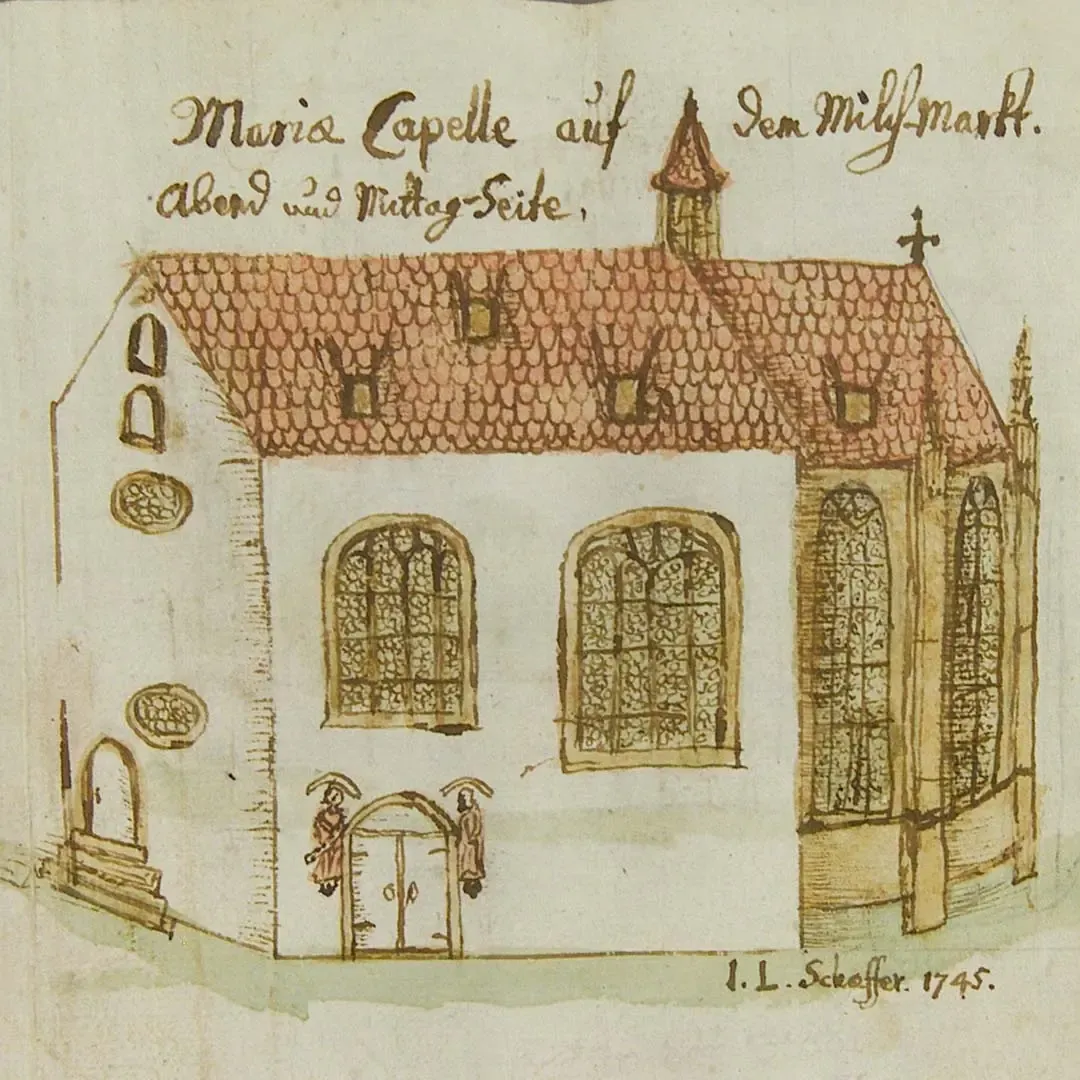 Mariæ Capelle auf dem Milch-Markt.
Abend und Mittag-Seite.
I. L. Schæffer. 1745.